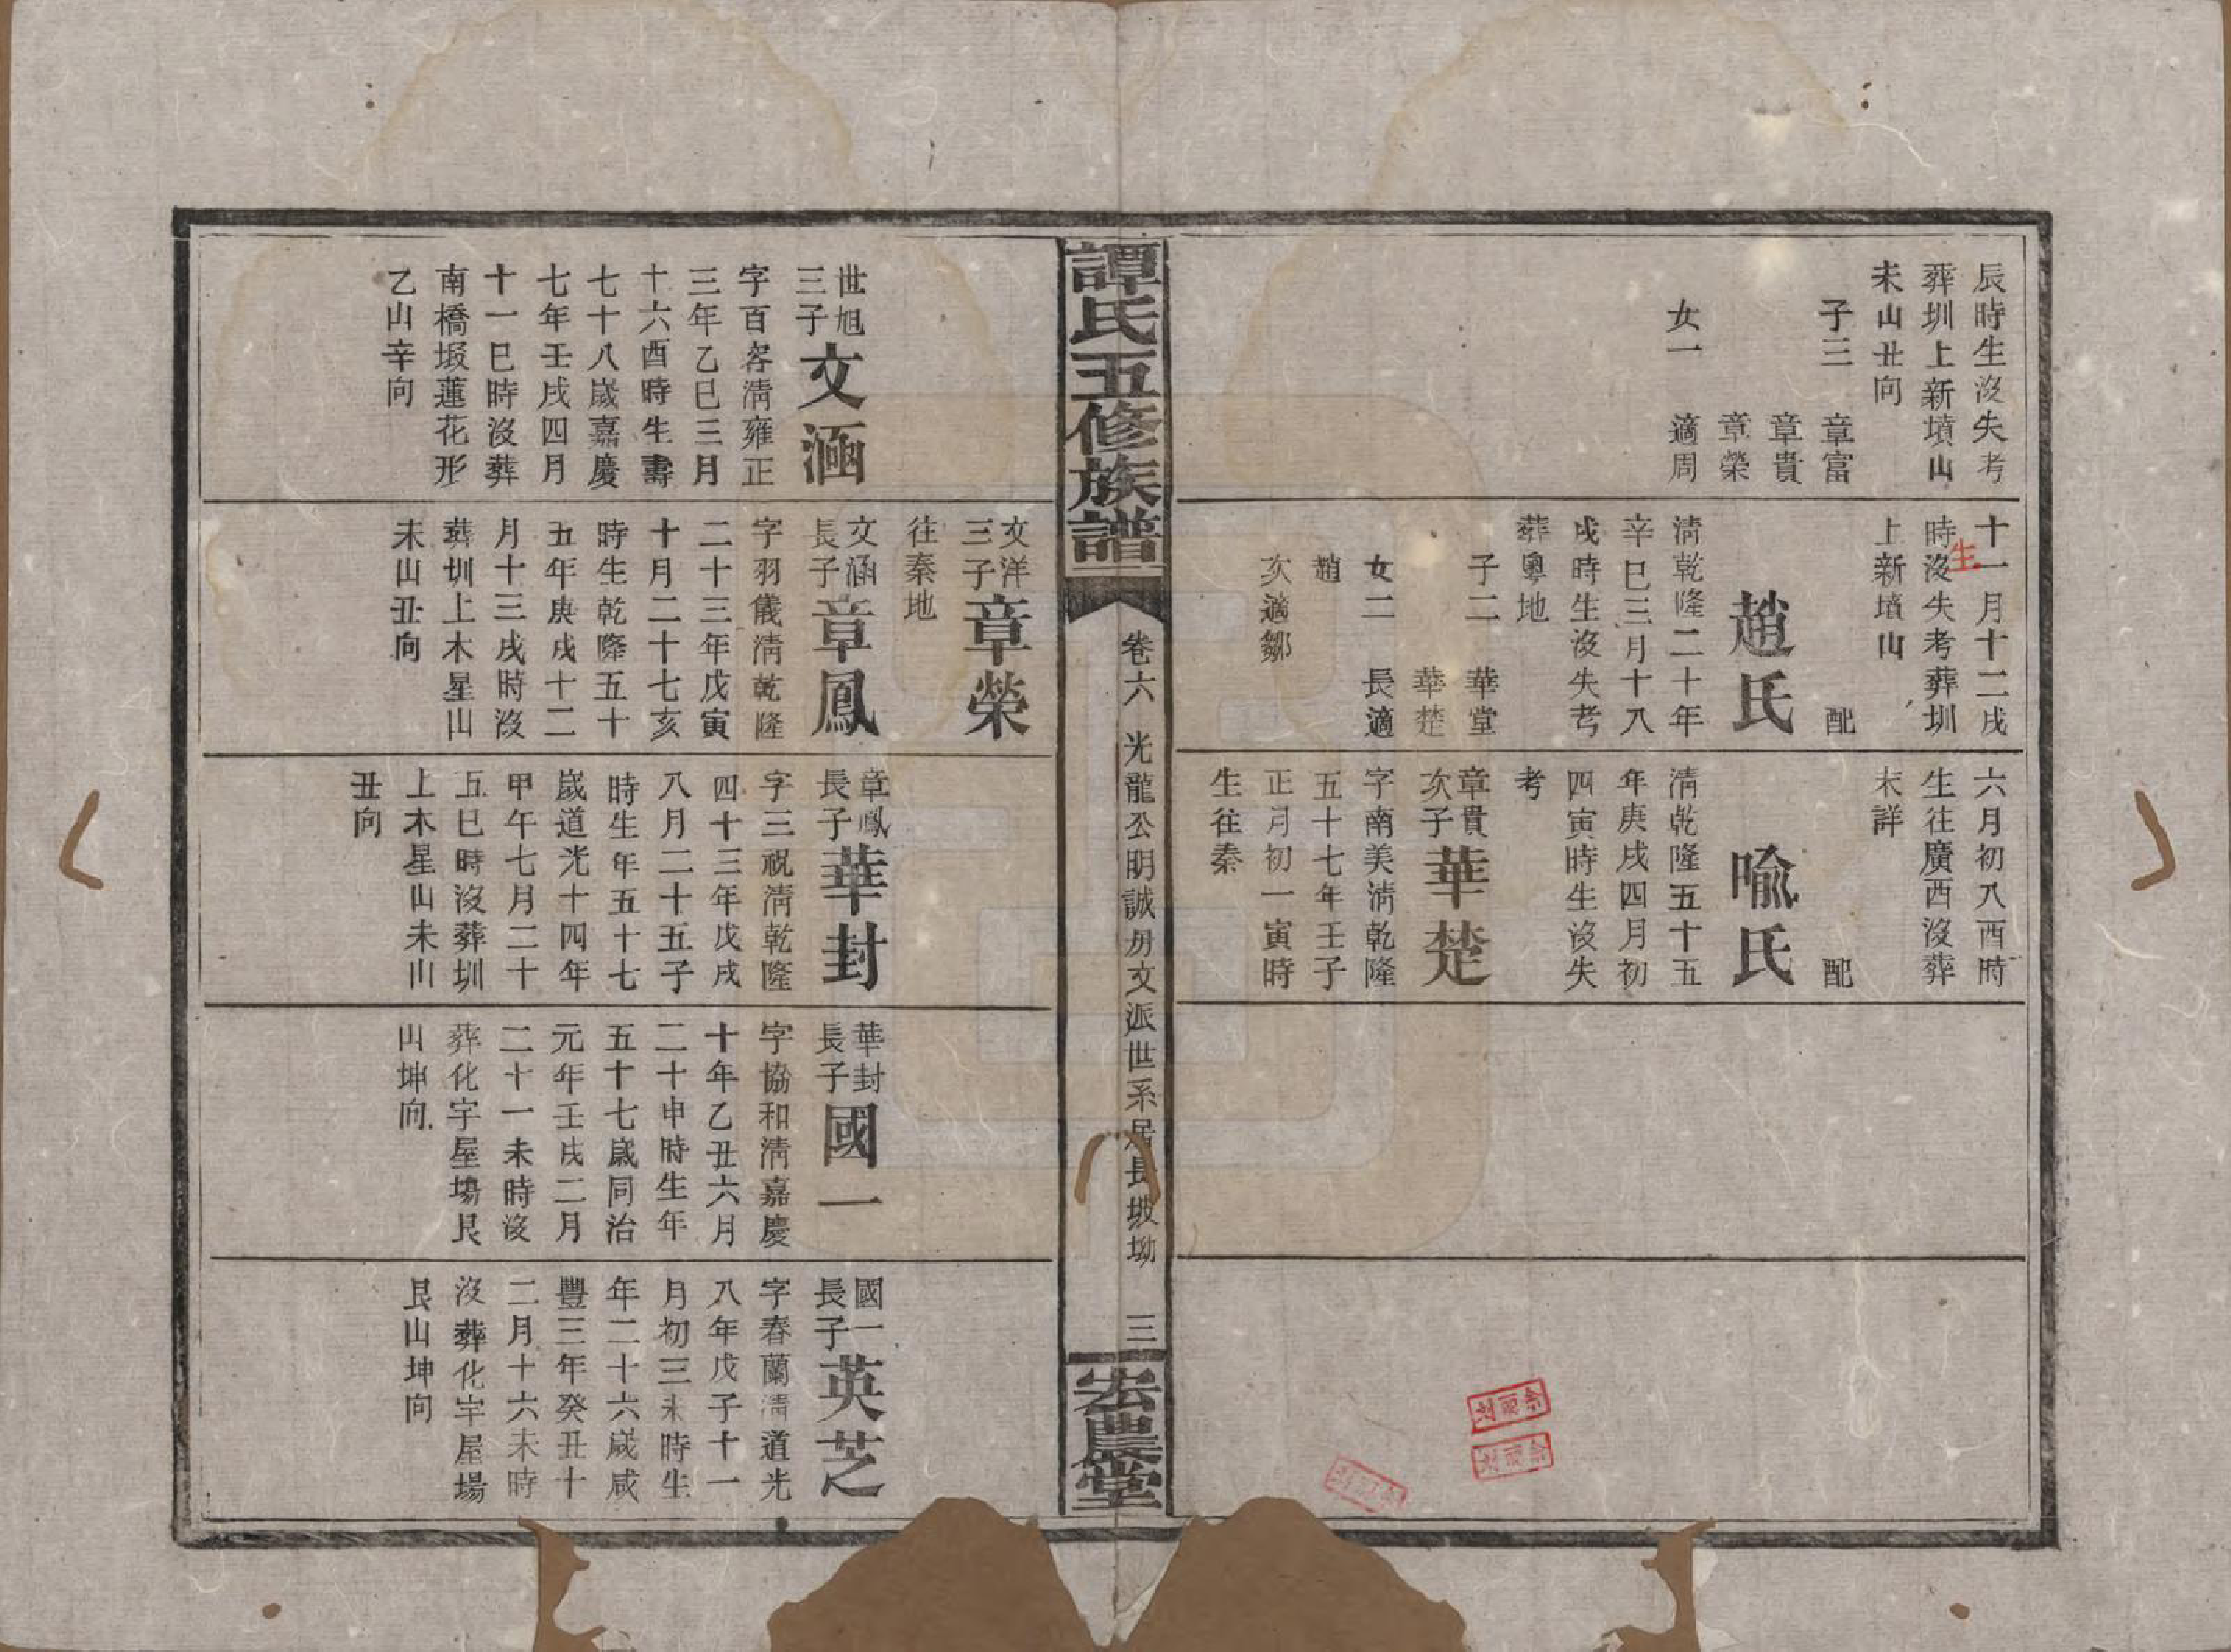 辰時生沒失考
葬圳上新墳山
未山丑向
子三　章富
章貴
章榮
女一　適周
十一月十二戌
時生沒失考葬圳
上新墳山
配
趙氏
清乾隆二十年
辛巳三月十八
戌時生沒失考
葬粵地
子二　華堂
華楚
女二　長適
趙
次適鄒
六月初八酉時
生往廣西沒葬
未詳
配
喻氏
清乾隆五十五
年庚戌四月初
四寅時生沒失
考
章貴
次子華楚
字南美清乾隆
五十七年壬子
正月初一寅時
生往秦
譚氏五修族譜
卷六　光龍公明誠房文派世系居長坡坳　三
宏農堂
世旭
三子文涵
字百容清雍正
三年乙巳三月
十六酉時生壽
七十八歲嘉慶
七年壬戌四月
十一巳時沒葬
南橋塅蓮花形
乙山辛向
文洋
三子章榮
往秦地
文涵
長子章鳳
字羽儀清乾隆
二十三年戊寅
十月二十七亥
時生乾隆五十
五年庚戌十二
月十三戌時沒
葬圳上木星山
未山丑向
章鳳
長子華封
字三祝清乾隆
四十三年戊戌
八月二十五子
時生年五十七
歲道光十四年
甲午七月二十
五巳時沒葬圳
上木星山未山
丑向
華封
長子國一
字協和清嘉慶
十年乙丑六月
二十申時生年
五十七歲同治
元年壬戌二月
二十一未時沒
葬化宇屋場艮
山坤向
國一
長子英芝
字春蘭清道光
八年戊子十一
月初三未時生
年二十六歲咸
豐三年癸丑十
二月十六未時
沒葬化宇屋場
艮山坤向